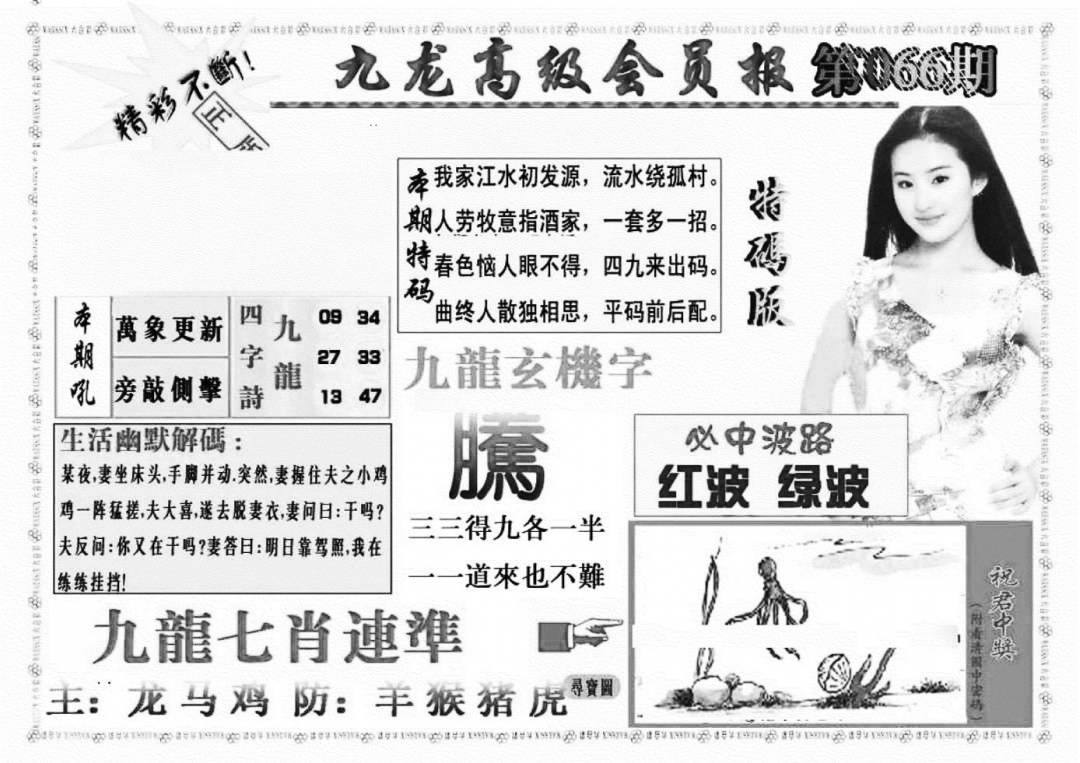 精彩不斷!
正版
九龙高级会员报 第066期
本期特码
我家江水初发源,流水绕孤村。
人劳牧意指酒家,一套多一招。
春色恼人眼不得,四九来出码。
曲终人散独相思,平码前后配。
特码版
本期吼
萬象更新
旁敲側擊
四字詩
九龍
09 34
27 33
13 47
九龍玄機字
騰
三三得九各一半
一一道來也不難
生活幽默解碼:
某夜,妻坐床头,手脚并动.突然,妻握住夫之小鸡
鸡一阵猛搓,夫大喜,遂去脱妻衣,妻问曰:干吗?
夫反问:你又在干吗?妻答曰:明日靠驾照,我在
练练挂挡!
必中波路
红波 绿波
九龍七肖連準
主:龙马鸡 防:羊猴猪虎
尋寶圖
祝君中獎